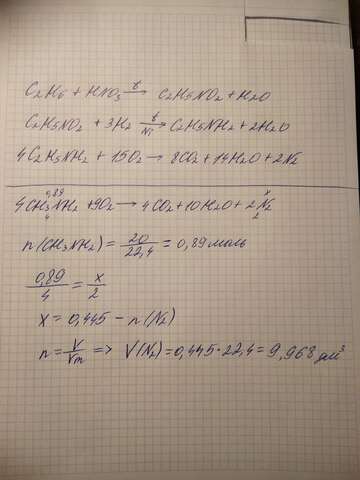 C₂H₆ + HNO₃ →ᵗ C₂H₅NO₂ + H₂O
C₂H₅NO₂ + 3H₂ →ᵗ Ni C₂H₅NH₂ + 2H₂O
4C₂H₅NH₂ + 15O₂ → 8CO₂ + 14H₂O + 2N₂
0,89 x
4CH₃NH₂ + 9O₂ → 4CO₂ + 10H₂O + 2N₂
4 2
n(CH₃NH₂) = 20/22,4 = 0,89 моль
0,89/4 = x/2
x = 0,445 - n(N₂)
n = V/Vm => V(N₂) = 0,445·22,4 = 9,968 дм³